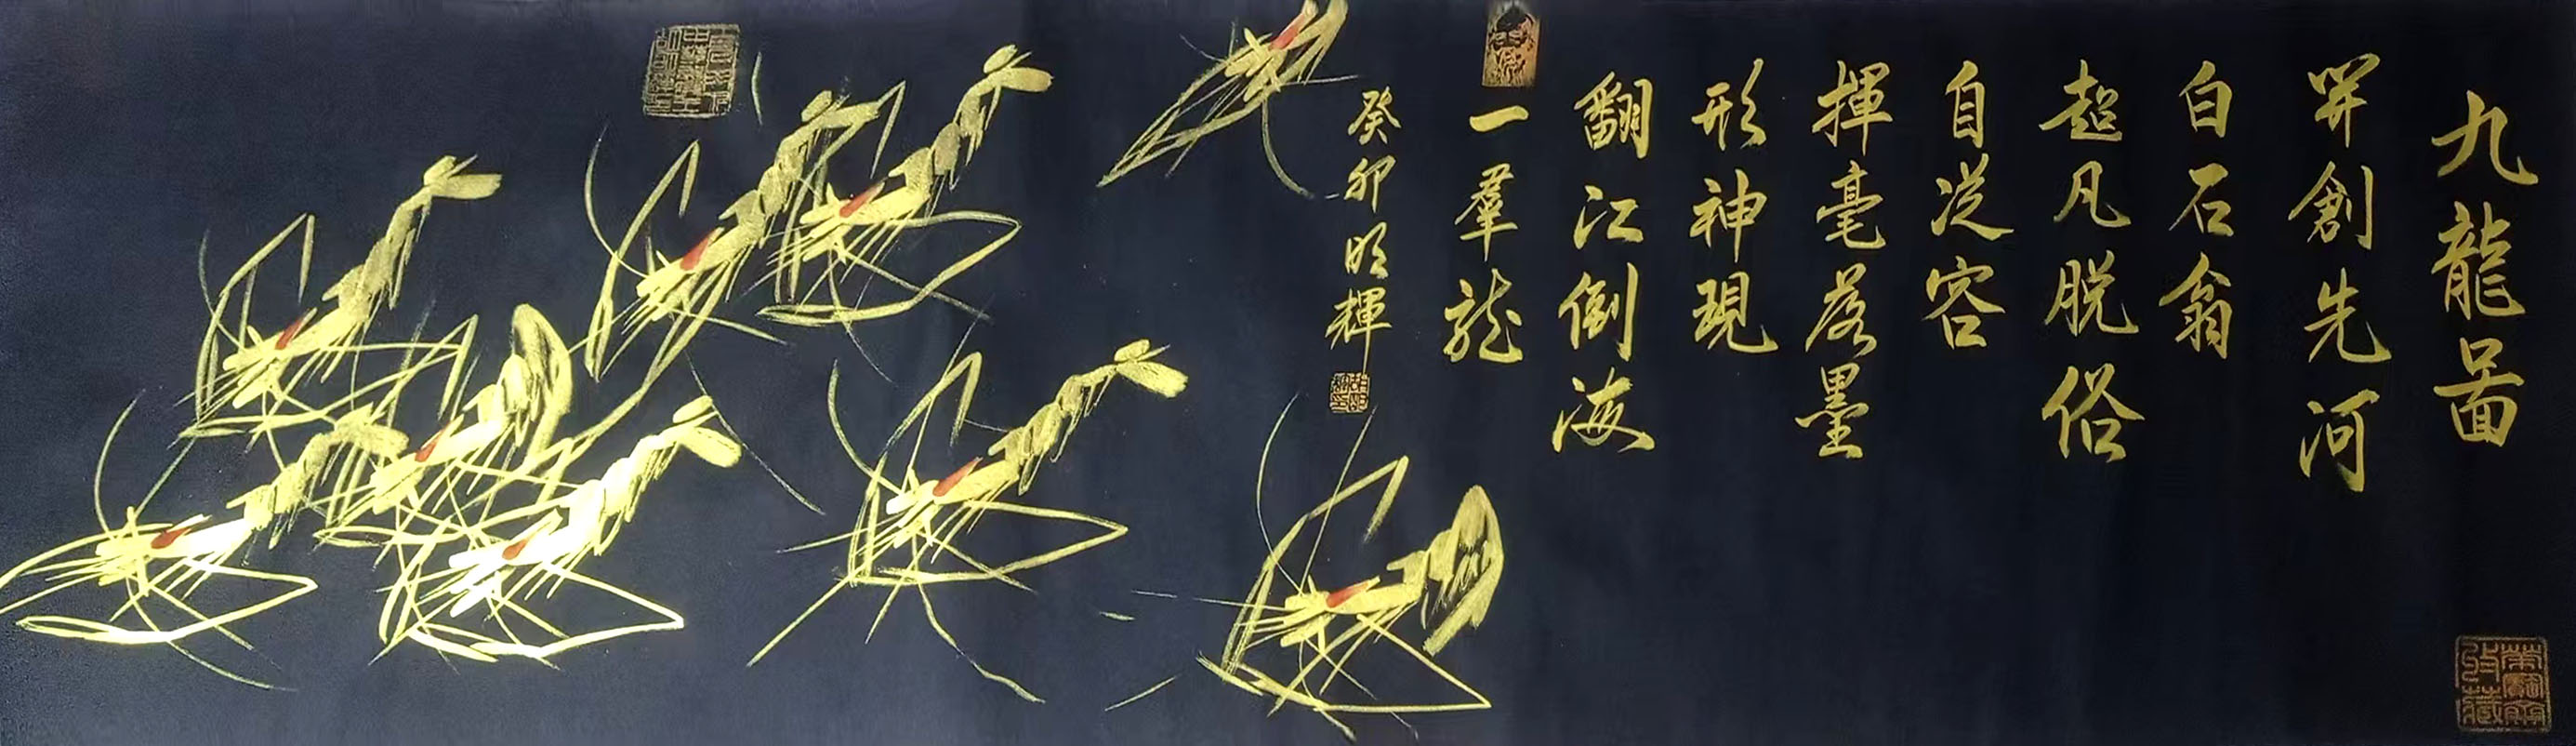 九龍圖
開創先河
白石翁
超凡脱俗
自從容
揮毫落墨
形神現
翻江倒海
一羣龍
癸卯明輝